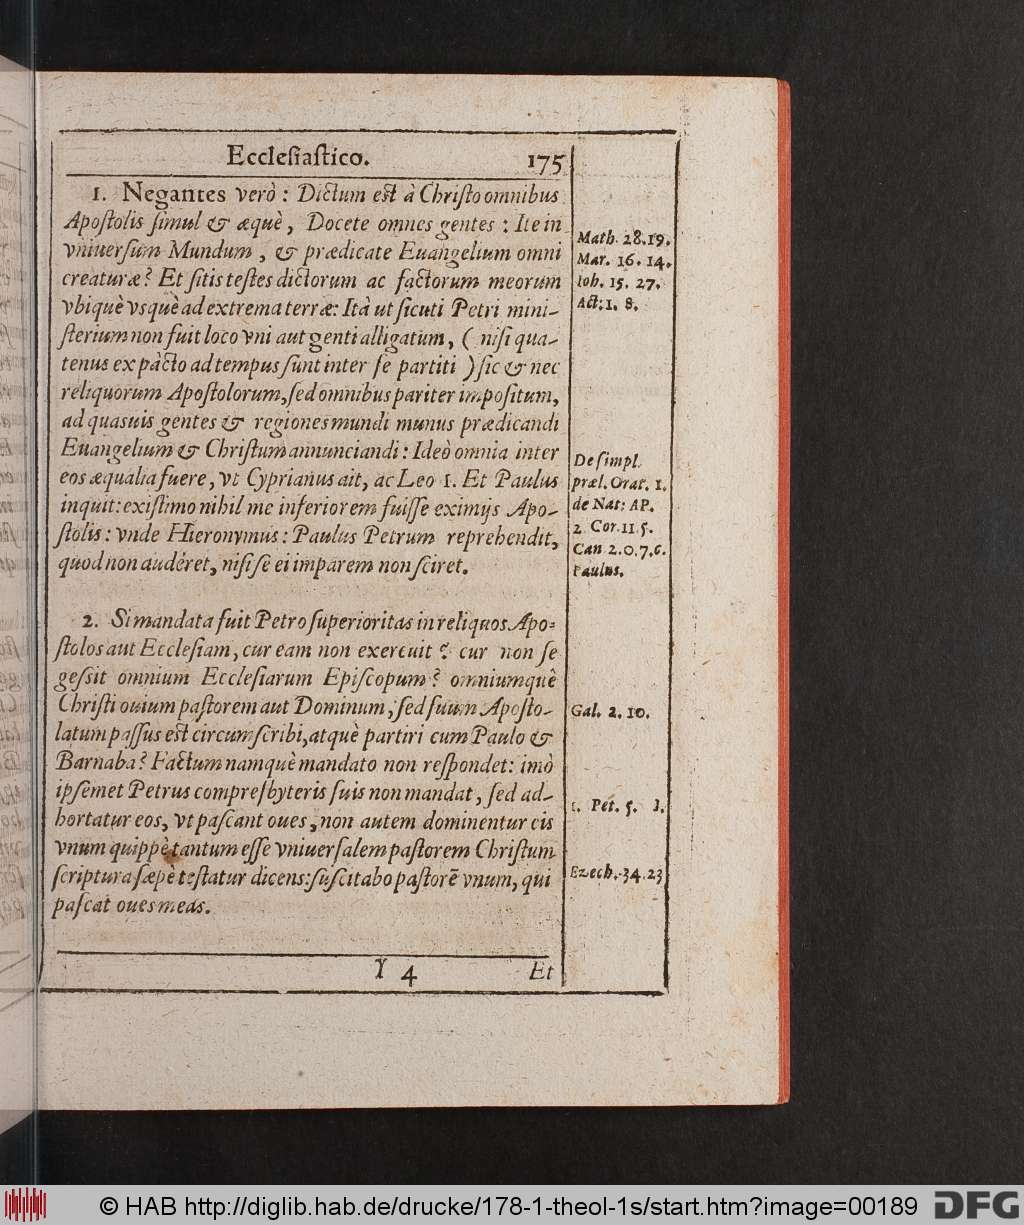 Eccleſiaſtico. 175
1. Negantes verò: Dictum est à Chriſto omnibus
Apoſtolis ſimul & æquè, Docete omnes gentes: Ite in
vniuerſum Mundum, & prædicate Euangelium omni
creaturæ? Et ſitis teſtes dictorum ac factorum meorum
vbiquè vsquè ad extrema terræ: Ità ut ſicuti Petri mini-
ſterium non fuit loco vni aut genti alligatum, (niſi qua-
tenus ex pàcto ad tempus ſunt inter ſe partiti) ſic & nec
reliquorum Apoſtolorum, ſed omnibus pariter impoſitum,
ad quasuis gentes & regiones mundi munus prædicandi
Euangelium & Chriſtum annunciandi: Ideò omnia inter
eos æqualia fuere, vt Cyprianus ait, ac Leo 1. Et Paulus
inquit: exiſtimo nihil me inferiorem fuiſſe eximijs Apo-
ſtolis: vnde Hieronymus: Paulus Petrum reprehendit,
quod non auderet, niſi ſe ei imparem non ſciret.
Math. 28.19.
Mar. 16. 14.
Ioh. 15. 27.
Act: 1. 8.
De ſimpl.
præl. Orat. 1.
de Nat: AP.
2 Cor. 11 5.
Can 2. 0. 7. c.
Paulus.
2. Si mandata fuit Petro ſuperioritas in reliquos Apo-
ſtolos aut Eccleſiam, cur eam non exercuit? cur non ſe
geſsit omnium Eccleſiarum Epiſcopum? omniumquè
Chriſti ouium paſtorem aut Dominum, ſed ſuum Apoſto-
latum paſſus est circumſcribi, atquè partiri cum Paulo &
Barnaba? Factum namquè mandato non reſpondet: imò
ipſemet Petrus compresbyteris ſuis non mandat, ſed ad-
hortatur eos, vt paſcant oues, non autem dominentur eis
vnum quippè tantum eſſe vniuerſalem paſtorem Chriſtum
ſcriptura ſæpè teſtatur dicens: ſuſcitabo paſtorē vnum, qui
paſcat oues meas.
Gal. 2. 10.
1. Pet. 5. 1.
Ezech. 34. 23
Y 4 Et
© HAB http://diglib.hab.de/drucke/178-1-theol-1s/start.htm?image=00189 DFG